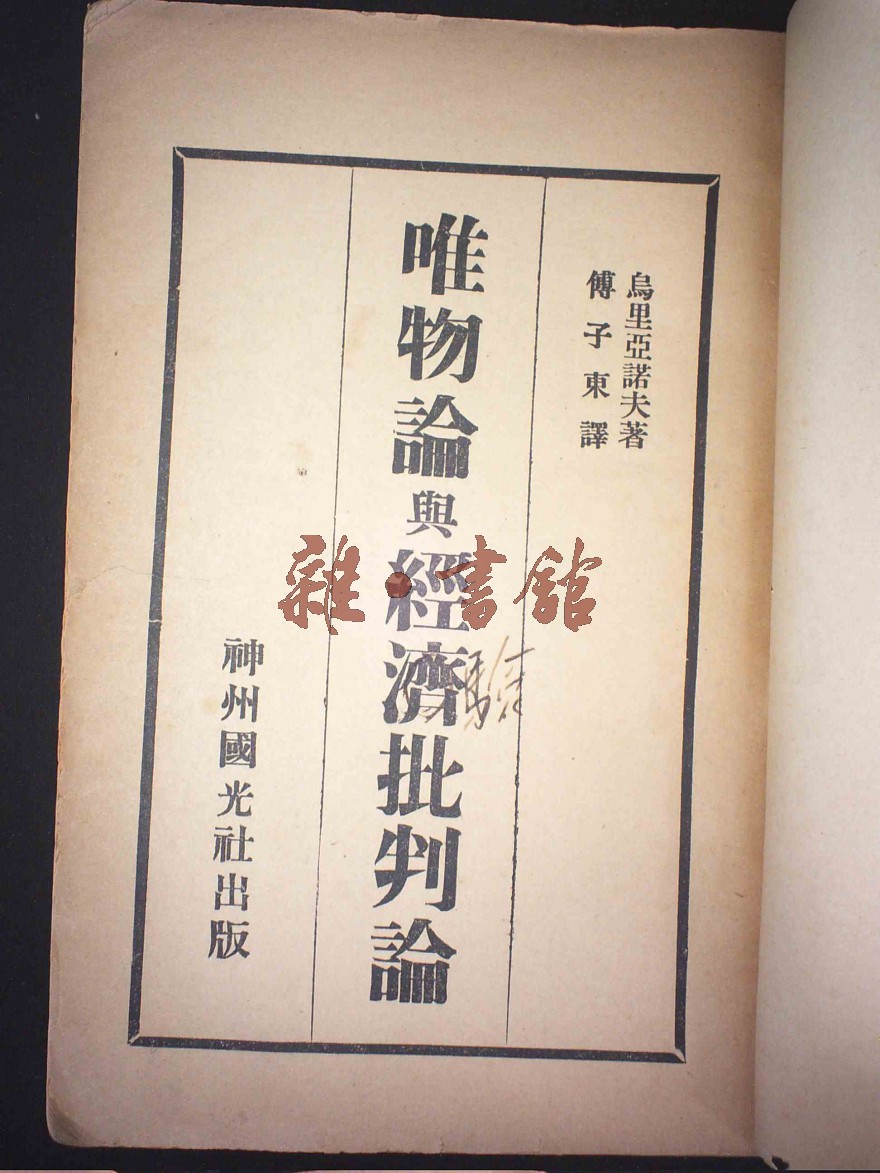 烏里亞諾夫著
傅子東譯
唯物論與經濟批判論
驗
神州國光社出版
雜·書館